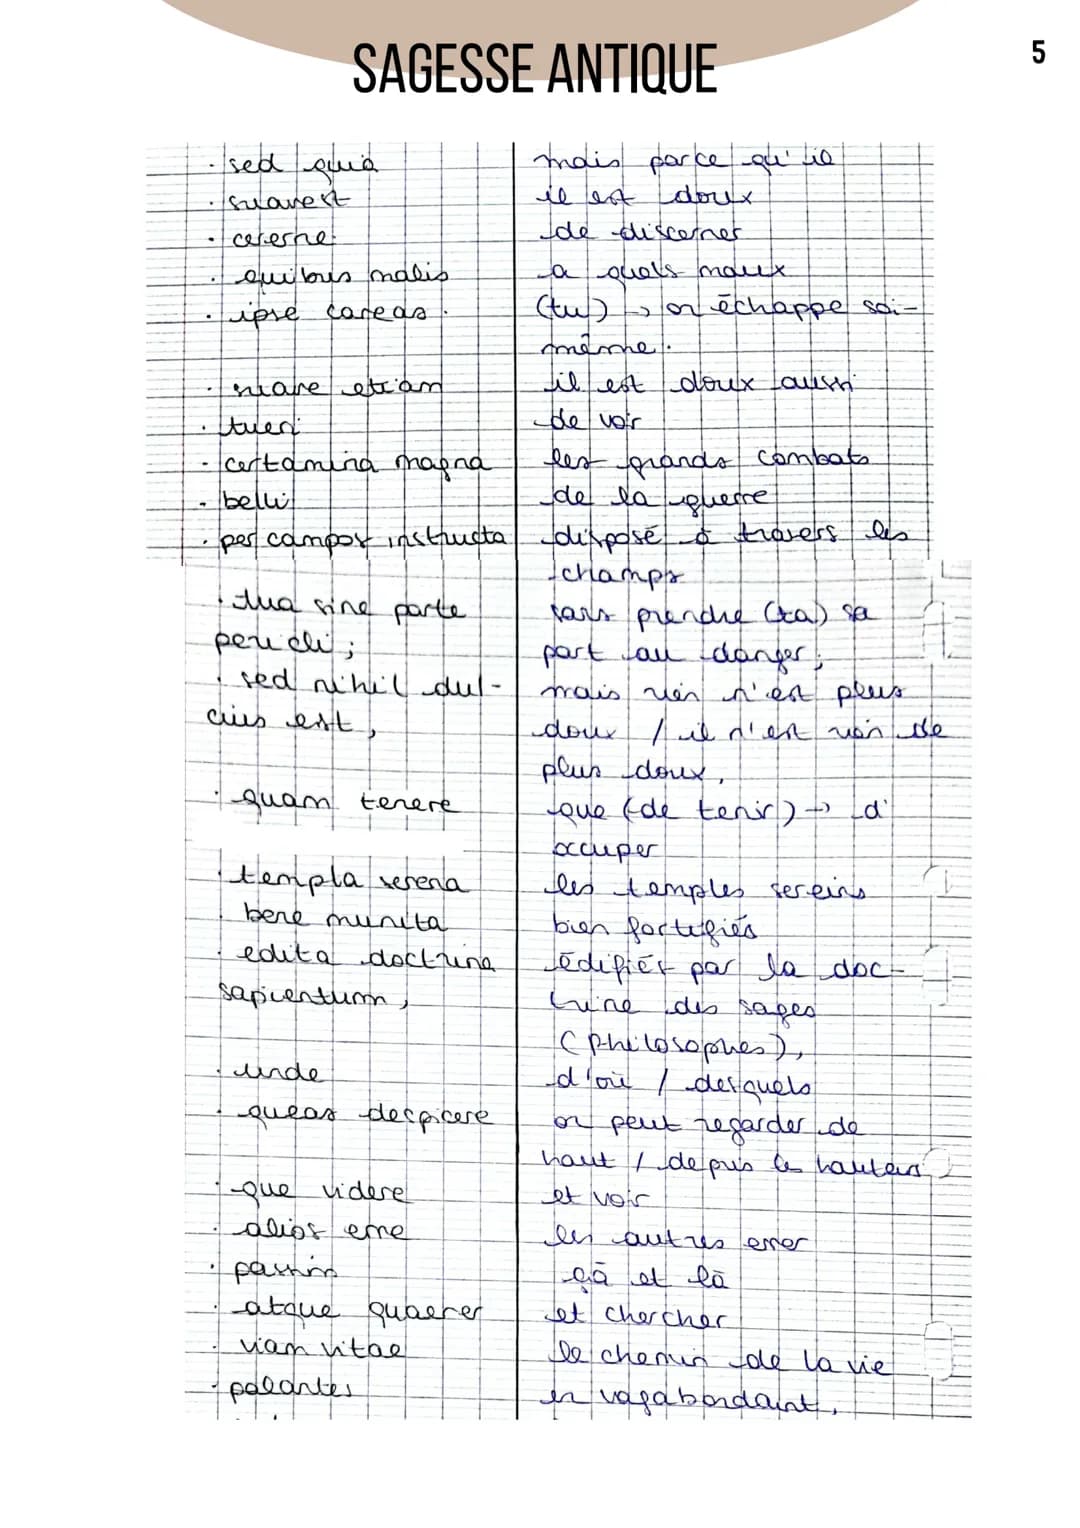 SAGESSE ANTIQUE
5
· sed quia
mais parce qu'il
· suavest
il est doux
· cererne
de discerner
· quibus malis
a quels maux
· ipse careas.
(tu) → on échappe soi-
même.
· suave etiam
il est doux aussi
· tueri
de voir
· certamina magna
les grands combats
· belli
de la guerre
· per campos instructa
disposé à travers les
champs
· tua sine parte
sans prendre (ta) sa
pericli ;
part au danger ;
· sed nihil dul-
mais rien n'est plus
cius est,
doux / il n'est rien de
plus doux,
· quam tenere
que (de tenir) → d'
occuper
· templa serena
les temples sereins
bene munita
bien fortifiés
· edita doctrina
édifiés par la doc-
sapientum,
trine des sages
(philosophes),
· unde
d'où / desquels
· queas despicere
on peut regarder de
haut / depuis les hauteurs
· que videre
et voir
· alios erre
les autres errer
· passim
çà et là
· atque quaerer
et chercher
· viam vitae
le chemin de la vie
· palantes
en vagabondant,